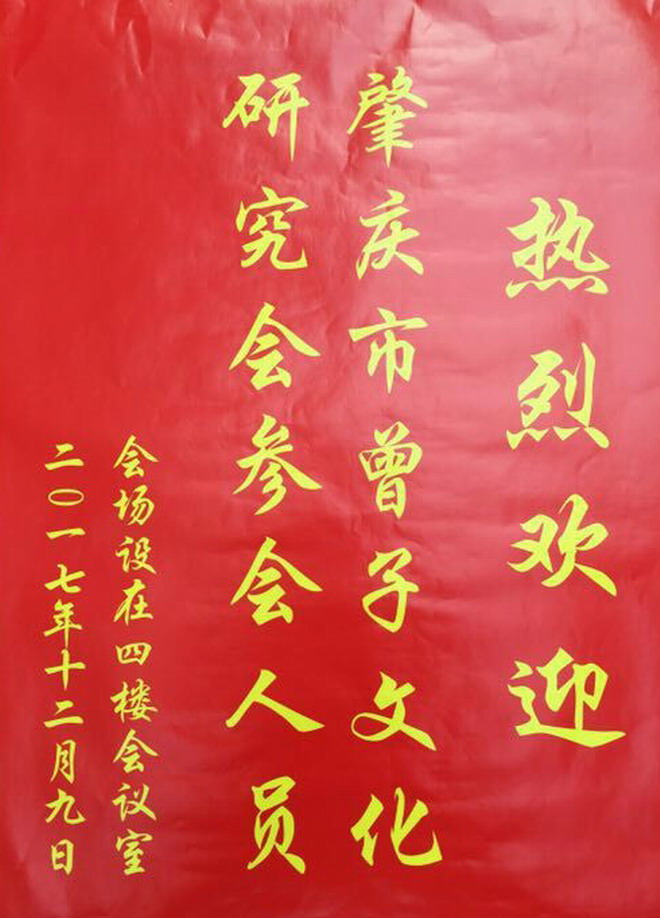 热烈欢迎
肇庆市曾子文化
研究会参会人员
会场设在四楼会议室
二〇一七年十二月九日